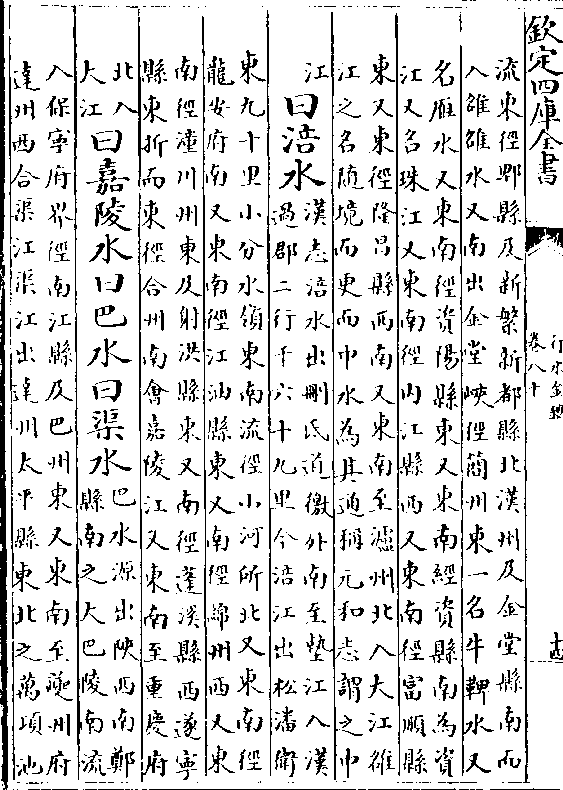 欽定四庫全書
行水金鑑
卷八十
流東徑郫縣及新繁新都縣北漢州及金堂縣南而
入雒雒水又南出金堂峽徑簡州東一名牛鞞水又
名雁水又東南徑資陽縣東又東南經資縣南為資
江又名珠江又東南徑内江縣西又東南徑富順縣
東又東徑隆昌縣西南又東南至瀘州北入大江雒
江之名隨境而更而中水為其通稱元和志謂之中
江
曰涪水
漢志涪水出剛氐道徼外南至墊江入漢
過郡二行千六十九里今涪江出松潘衛
東九十里小分水嶺東南流徑小河所北又東南徑
龍安府南又東南徑江油縣東又南徑綿州西又東
南徑潼川州東及射洪縣東又南徑蓬溪縣西遂寧
縣東折而東徑合州南會嘉陵江又東南至重慶府
北入
大江
曰嘉陵水曰巴水曰渠水
巴水源出陝西南鄭
縣南之大巴陵南流
入保寧府界徑南江縣及巴州東又東南至夔州府
達州西合渠江渠江出達州太平縣東北之萬項池